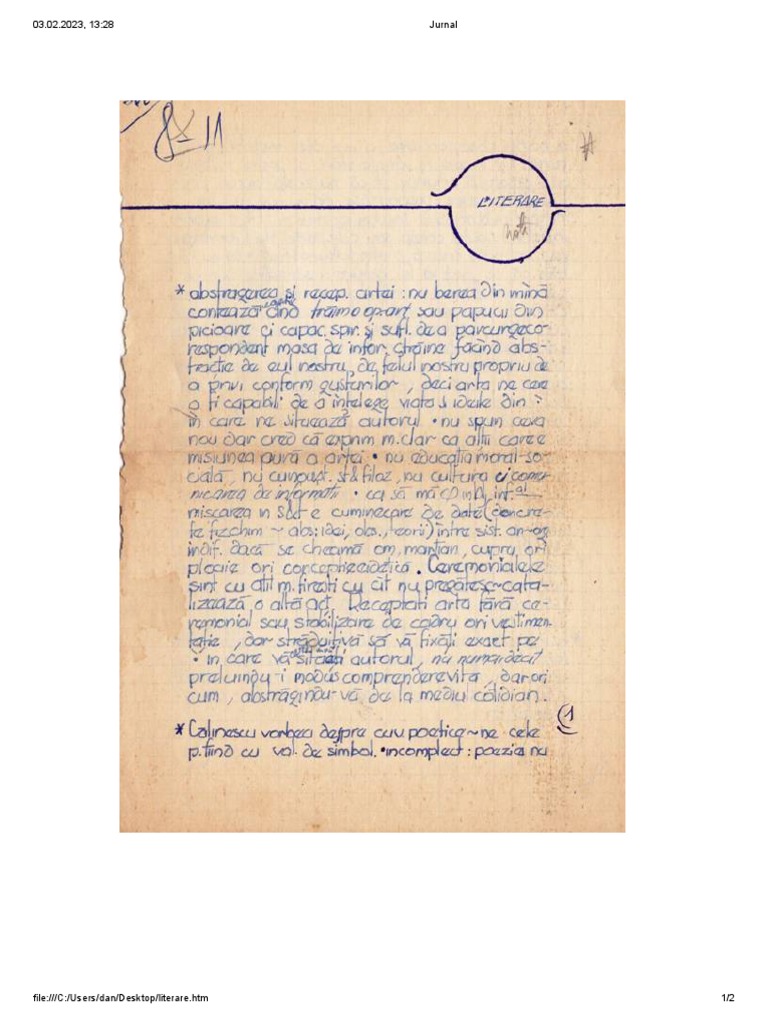 03.02.2023, 13:28 Jurnal
8 11
LITERARE
* abstragerea și recep. artei : nu berea din mînă
contează cînd trăim o op.art sau papucii din
picioare ci capac. spir. și sufl. de a parcurge co-
respondent masa de infor. străine făcînd abs-
tracție de eul nostru, de felul nostru propriu de
a privi conform gusturilor, deci arta ne cere
a fi capabili de a înțelege viața și ideile din
în care ne situează autorul • nu spun ceva
nou dar cred că exprim m. clar ca alții care e
misiunea pură a artei • nu educația moral-so-
cială, nu cunoușt. st & filoz, nu cultura ci comu-
nicarea de informații • ca să mă
mișcarea în e cuminecare de date (concre-
te fizchim ~ abs: idei, obs., teorii) între sist. an-org
indif. dacă se cheamă om, marțian, cupru, ori
ploaie ori concepție. Ceremonialele
sînt cu atît m. firești cu cît nu pregătesc ~ cata-
lizează o altă act. Receptați arta fără ce-
remonial sau stabilizare de cadru ori vestimen
tație, dar străduiți-vă să vă fixați exact pe
• în care vă autorul, nu numai decît
preluîndu-i modus comprenderevita, dar ori
cum, abstrăgîndu-vă de la mediul cotidian.
1
* Călinescu vorbea despre cuv poetice ~ ne cele
p. tiind cu val. de simbol. • incomplect : poezia nu
file:///C:/Users/dan/Desktop/literare.htm 1/2